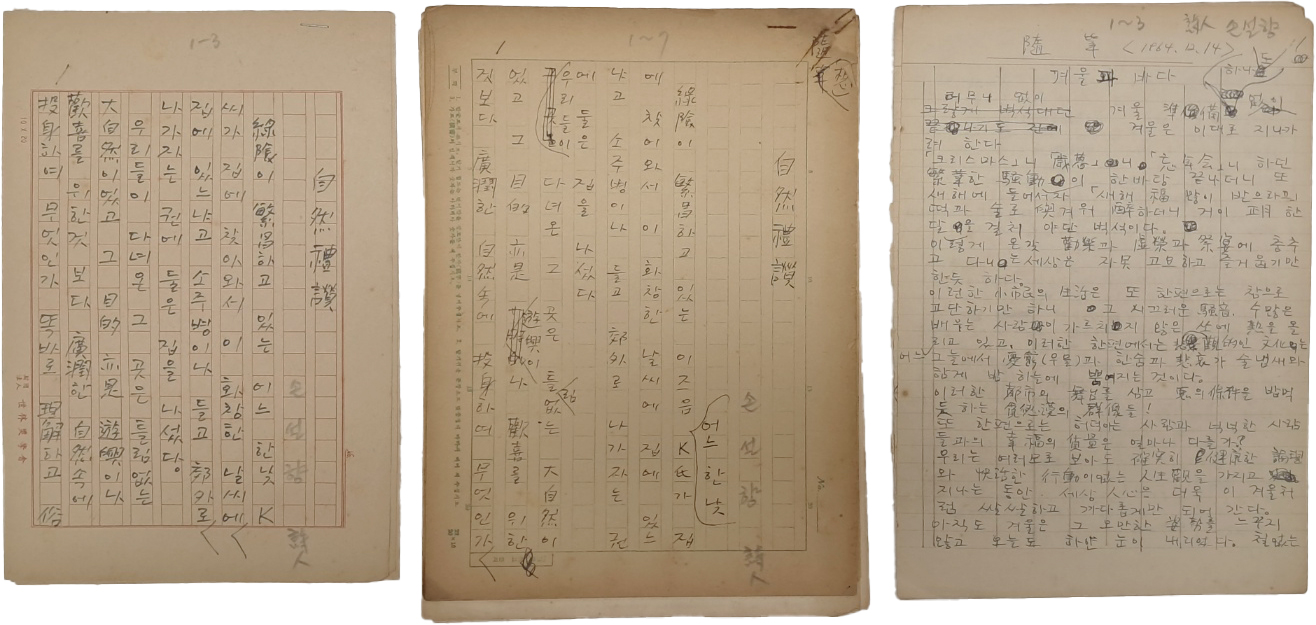 1-3
自然禮讚
손선향
詩人
綠陰이 繁昌하고 있는 어느 한낮 K
씨가 집에 찾아와서 이 화창한 날씨에
집에 있느냐고 소주병이나 들고 郊外로
나가자는 권에 들은 집을 나섰당
우리들이 다녀온 그 곳은 틀림없는
大自然이었고 그 目的 亦是 遊興이나
歡喜를 위한것 보다 廣濶한 自然속에
投身하여 무엇인가 똑바로 理解하고 俗
1~7
隨筆
自然禮讚
손선향
詩人
綠陰이 繁昌하고 있는 이즈음 K氏가 집
어느 한낮
에 찾어와서 이 화창한 날씨에 집에 있느
냐고 소주병이나 들고 郊外로 나가자는 권
에 들은 집을 나섰다
우리들이 다녀온 그 곳은 틀림없는 大自然이
었고 그 目的 亦是 遊興이나 歡喜를 위한
것보다 廣濶한 自然속에 投身하며 무엇인가
1~3 詩人 손선향
隨筆 <1964.12.14>
겨울과 바다
터무니 없이
겨울
겨울은 이대로 지나가
려 한다
「크리스마스」니 「歲暮」니 「忘年会」니 하던
繁華한 騷動이 한바탕 끝나더니 또
새해에 들어서자 「새해 福 많이 받으라」고
떡과 술로 겨워 醉하더니 거이 피 한
달을 걸쳐 야단 벅석이다.
이렇게 온갖 歡樂과 享樂과 祭宴에 춤추
고 다니는 세상은 자못 고보하고 즐거웁기만
한듯 하다.
이러한 小市民의 生活은 또 한편으로는 참으로
고단하기만 하니 고 지끄러운 騷音. 수많은
배우는 사람이 가르치지 않은 싸에 熱을 올
리고 있고. 이러한 한편에서는 觀的인 文化는
어느 그늘에서 憂鬱(우울)과 한숨과 悲哀가 술냄새와
함께 밤 하늘에 뿜어지는 것이다.
이러한 都市의 舞台를 삼고 惡의 保持을 밥먹
듯 하는 群像들!
또 한편으로는 허덕이는 사람과 넉넉한 사람
들과의 幸福의 質量은 얼마나 다를가?
우리는 여러모로 보아도 確実히 健康한 論理
와 快活한 行動이없는 人生観을 가지고
지나는 동안 세상 人心은 더욱 이 겨울처
럼 쌀쌀하고 까다롭게만 되어 간다.
아직도 겨울은 그 오만한 姿勢를 느추지
않고 오늘도 하얀 눈이 내리었다. 철없는